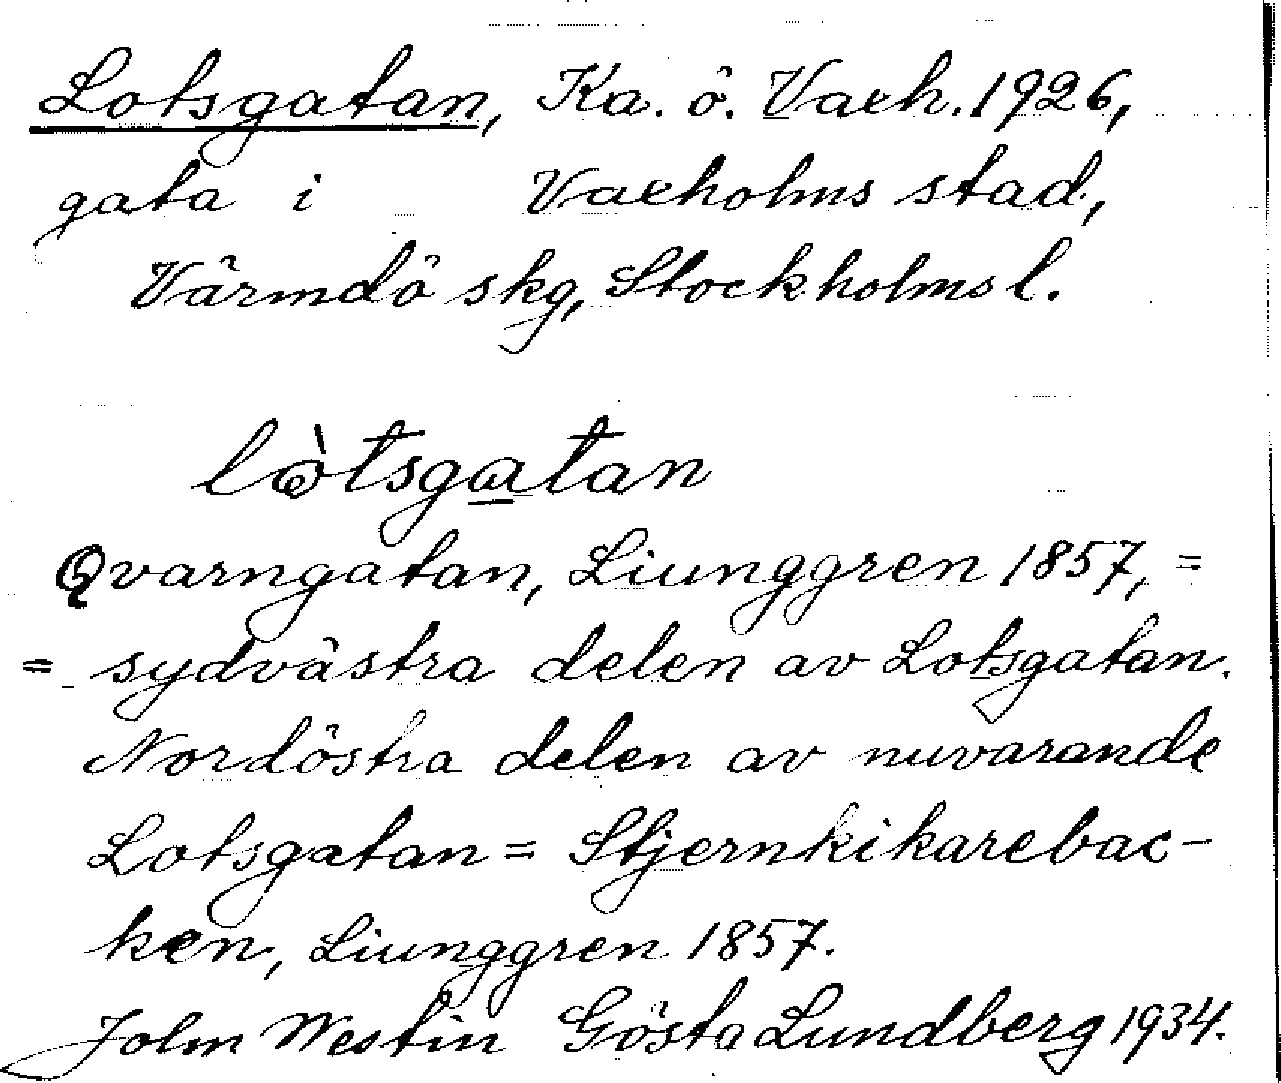 Lotsgatan, Ka. ö. Vaxh. 1926,
gata i Vaxholms stad,
Värmdö skg, Stockholms l.
lòtsgatan
Qvarngatan, Liunggren 1857, =
= sydvästra delen av Lotsgatan.
Nordöstra delen av nuvarande
Lotsgatan = Stjernkikarebac-
ken, Liunggren 1857.
John Westin Gösta Lundberg 1934.